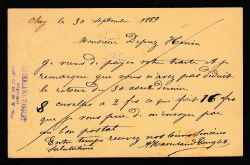 Ohey le 30 Septembre 1889
Monsieur Deprez Henin
je viens de payer votre traite et je
remarque que vous n'avez pas déduit
le retour du 30 aout dernier
8 à 2 frs ce qui fait 16 frs
que je vous prie de m'envoyer par
un bon postal
Entre temps recevez nos sincères
Salutations